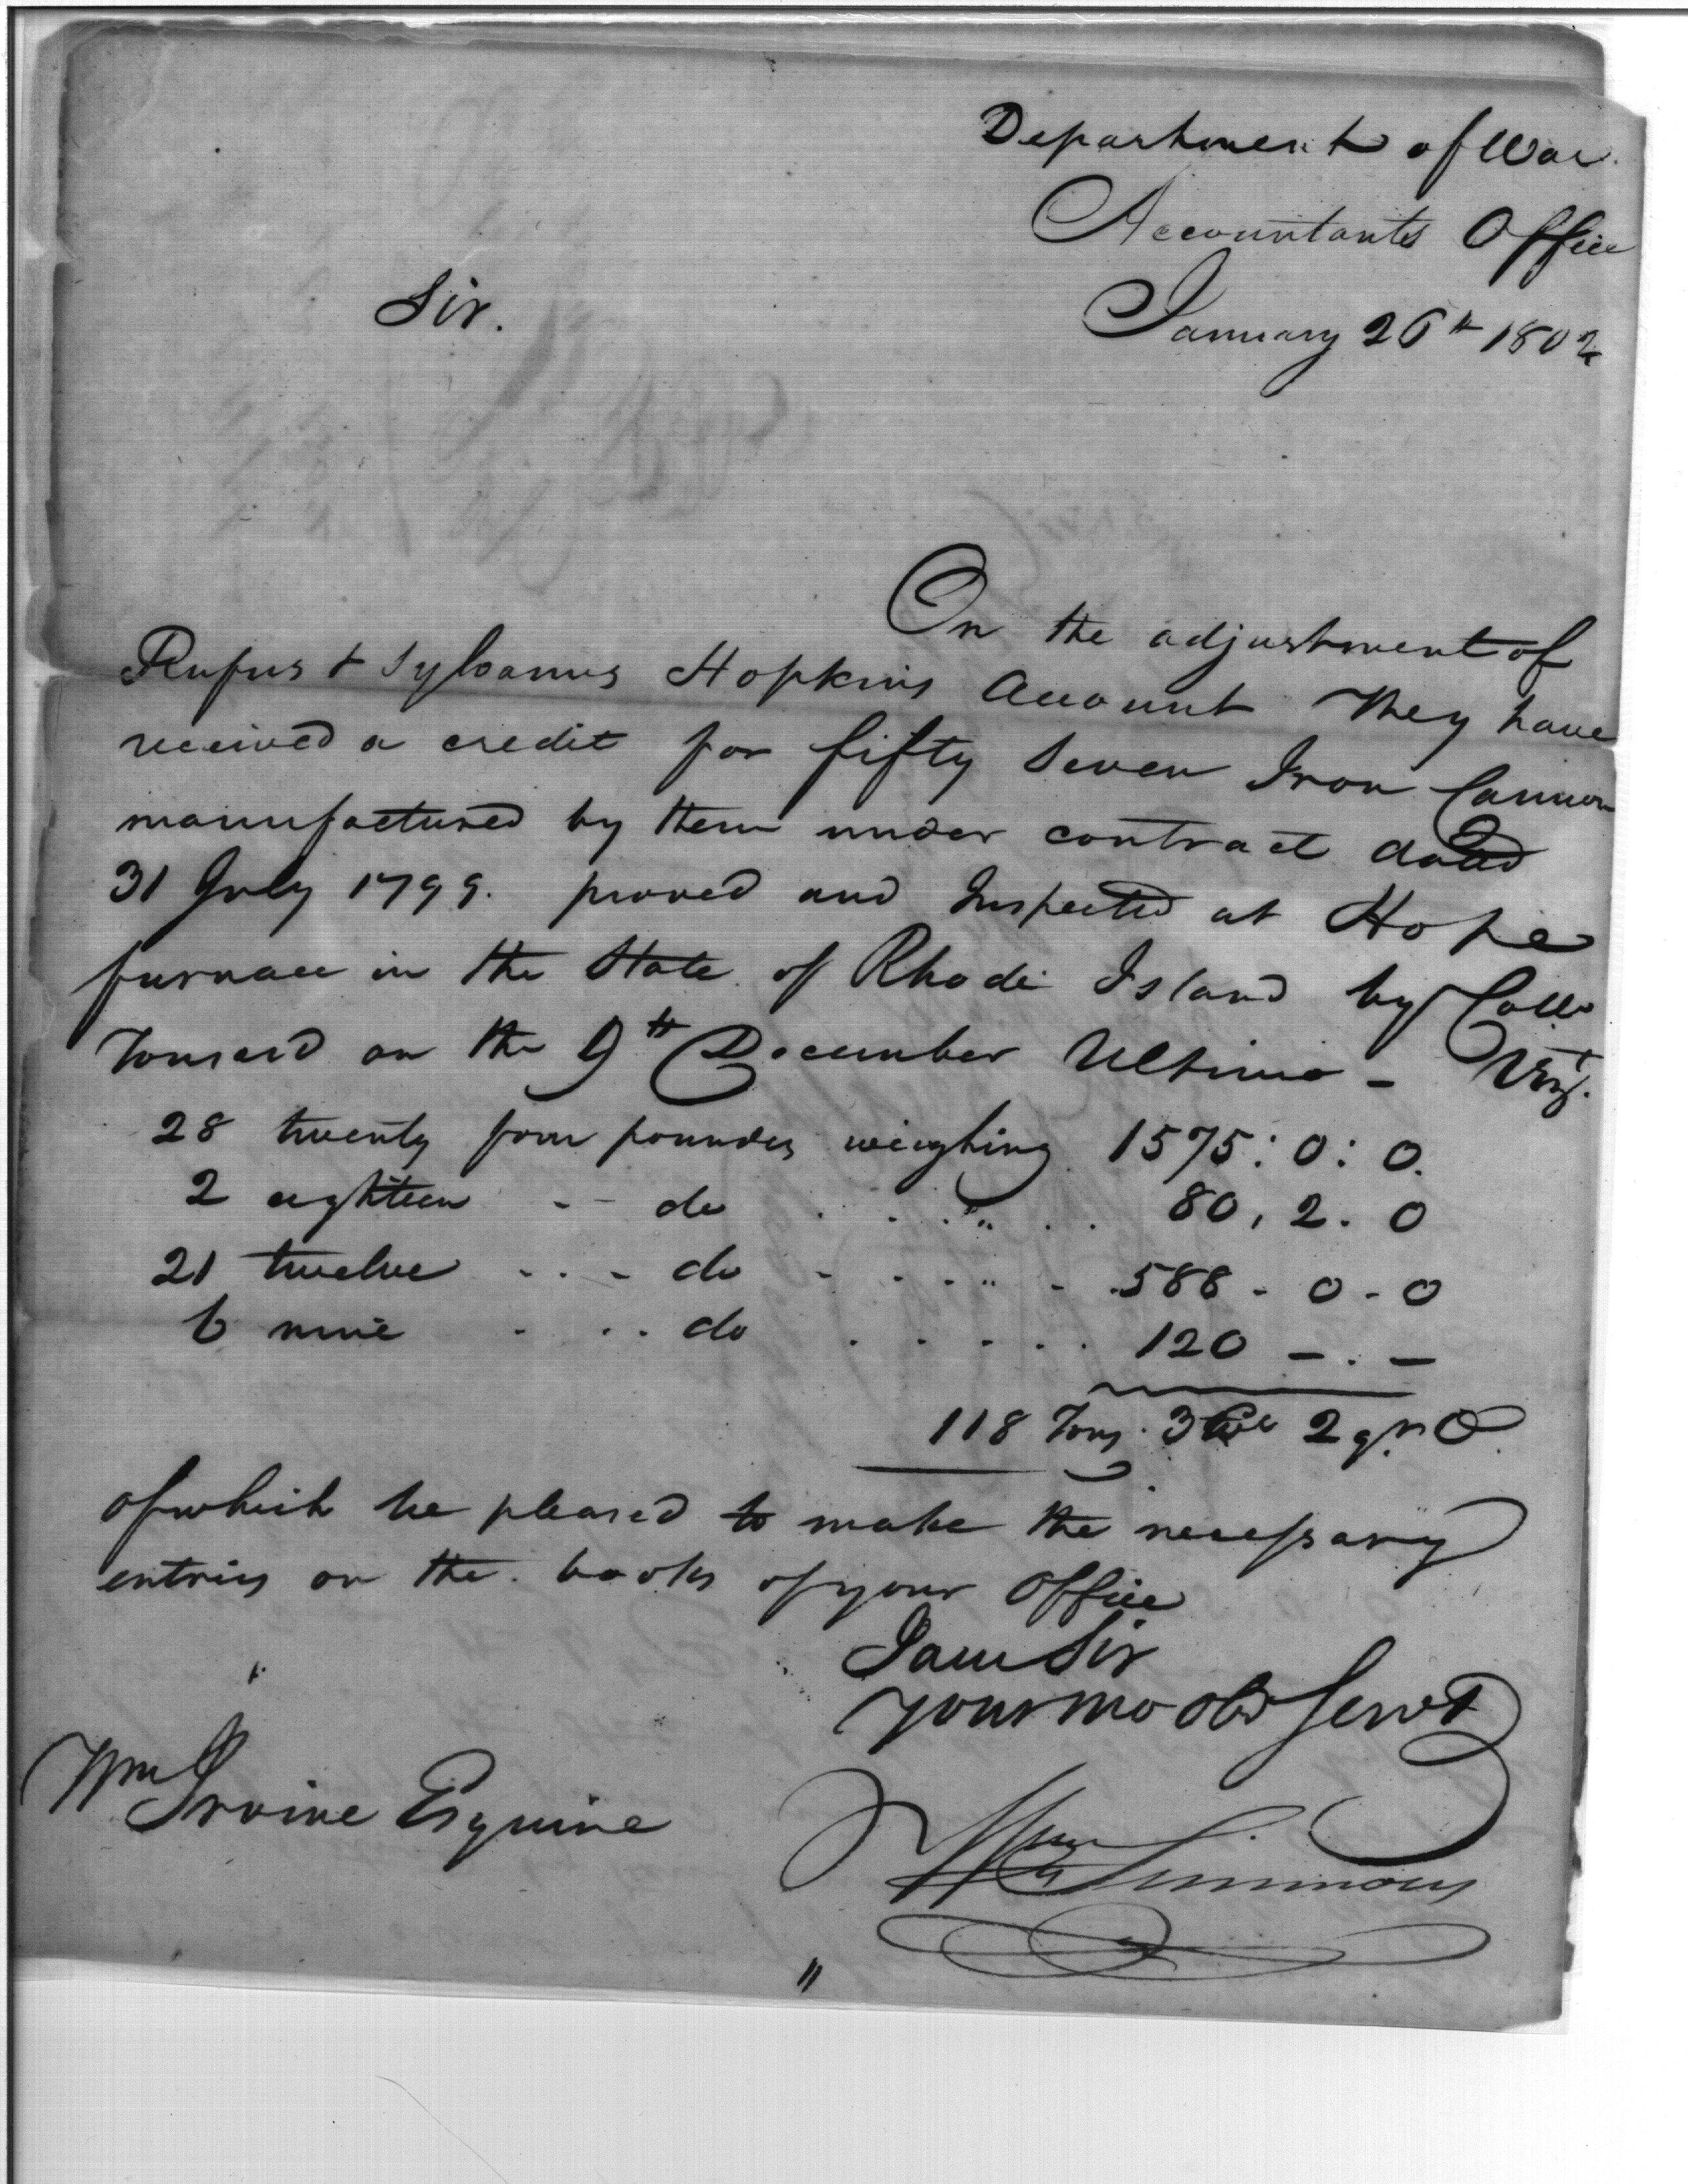 Department of War
Accountants Office
January 26th 1802
Sir.
On the adjustment of
Rufus & Sylvanus Hopkins Account They have
received a credit for fifty seven Iron Cannon
manufactured by them under contract dated
31 July 1799. proved and Inspected at Hope
furnace in the State of Rhode Island by Collo
Tousard on the 9th December Ultimo - Viz.
28 twenty four pounders weighing 1575: 0: 0.
2 eighteen - - do . . . " . . 80, 2. 0
21 twelve - - - do - - - " - 588 - 0 - 0
6 nine - . . do . . . . . 120 - . -
118 Tons. 3 Cwt 2 qrs 0
of which be pleased to make the necessary
entries on the books of your Office
I am Sir
your mo obd Servt
Wm Simmons
Wm Irvine Esquire